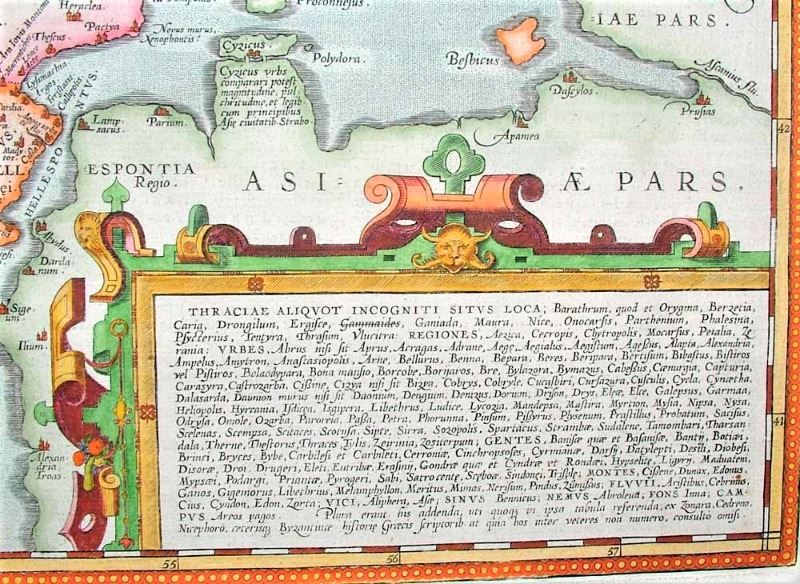 Heraclea.
Proconnesus.
Pactya
Thescus.
Novus murus,
Xenophontis
IAE PARS.
Cyzicus
Polydora.
Besbicus
Cyzicus vrbs
comparari potest
magnitudine, pul
chritudine, et legib
cum principibus
Asię ciuitatib. Strabo.
Ascanus flu.
Dascylos.
Prusias
Lysimachia
Callipolis
Lamp-
sacus.
Parium.
Apamea
42
HELLESPONTVS.
ESPONTIA
Regio.
ASI-
Æ PARS.
Abydus.
Darda-
num.
Sige-
um
Ilium.
Alexan-
dria
Troas
41
THRACIAE ALIQVOT INCOGNITI SITVS LOCA; Barathrum, quod et Orygma, Berzetia,
Caria, Drongilum, Ergisce, Gammaides, Ganiada, Maura, Nice, Onocarsis, Parthenium, Phalesina,
Psycterius, Tentyra, Thrasum, Vlucitra: REGIONES, Aezica, Cecropis, Chytropolis, Mocarsus, Petalia, Ze
rania: VRBES, Abrus nisi sit Aprus, Acragas, Adrane, Aege, Aegialus, Aegistum, Agessus, Alapta, Alexandria,
Ampelus, Amytron, Anastasiopolis, Arne, Bellurus, Benna, Bepara, Beres, Beripara, Bertisum, Bibastus, Bistiros
vel Pistiros, Beladypara, Bona mansio, Borcobe, Borijaros, Bre, Bylazora, Bymazus, Cabessus, Cænurgia, Capturia,
Carasyra, Castrozarba, Cissine, Cizya nisi sit Bizya, Cobrys, Cobryle, Cucasbiri, Cursazura, Cusculis, Cycla, Cynætha,
Dalasarda, Daunion murus nisi sit Daonion, Dengium, Denizus, Dorium, Drison, Drys, Eleæ, Elce, Galepsus, Garmaa,
Heliopolis, Hyreania, Isdicea, Isgipera, Libethrus, Ludice, Lycozia, Mandepsa, Mastira, Myrtion, Mysia, Nipsa, Nysa,
Odrysa, Oniole, Ozarba, Parœcia, Pasta, Petra, Phorunna, Pinsum, Pistyrus, Plysenum, Prastillus, Probatum, Sacissus,
Scelenas, Scempsa, Scitaces, Scotusa, Sipte, Sirra, Sozopolis, Spartacus, Strambæ, Sudalene, Tamombari, Tharsan
dala, Therne, Thestorus, Thraces, Tylis, Zeirinia, Zositerpum; GENTES, Banisæ quæ et Basanisæ, Bantij, Botiæi,
Brinci, Bryces, Bybe, Carbilesi et Carbileti, Cerronij, Cinchropsoses, Cyrmianæ, Darsij, Datylepti, Desili, Diobesi,
Disoræ, Droi, Drugeri, Eleti, Entribæ, Erasinij, Gondræ quæ et Cyndræ et Rondæi, Hypselitæ, Ligyrij, Maduateni,
Mypsæi, Podargi, Priantæ, Pyrogeri, Sabi, Satrocentæ, Scyboæ, Sindonei, Trisplæ; MONTES, Cissene, Dunax, Edonus,
Ganos, Gigemorus, Libethrius, Melamphyllon, Meritus, Mimas, Nerisum, Pindis, Zilmissus; FLVVII, Aristibus, Cebrinus,
Cius, Cydon, Edon, Zorta; VICI, Alphera, Asæ; SINVS Bennicus; NEMVS Abroleua; FONS Inna; CAM-
PVS Areos pagos. Plura erant his addenda, uti quoqz in ipsa tabula referenda, ex Zonara, Cedreno,
Nicephoro, ceterisqz Byzantinæ historiæ Græcis scriptorib. at quia hos inter veteres non numero, consulto omisi.
55
56
57